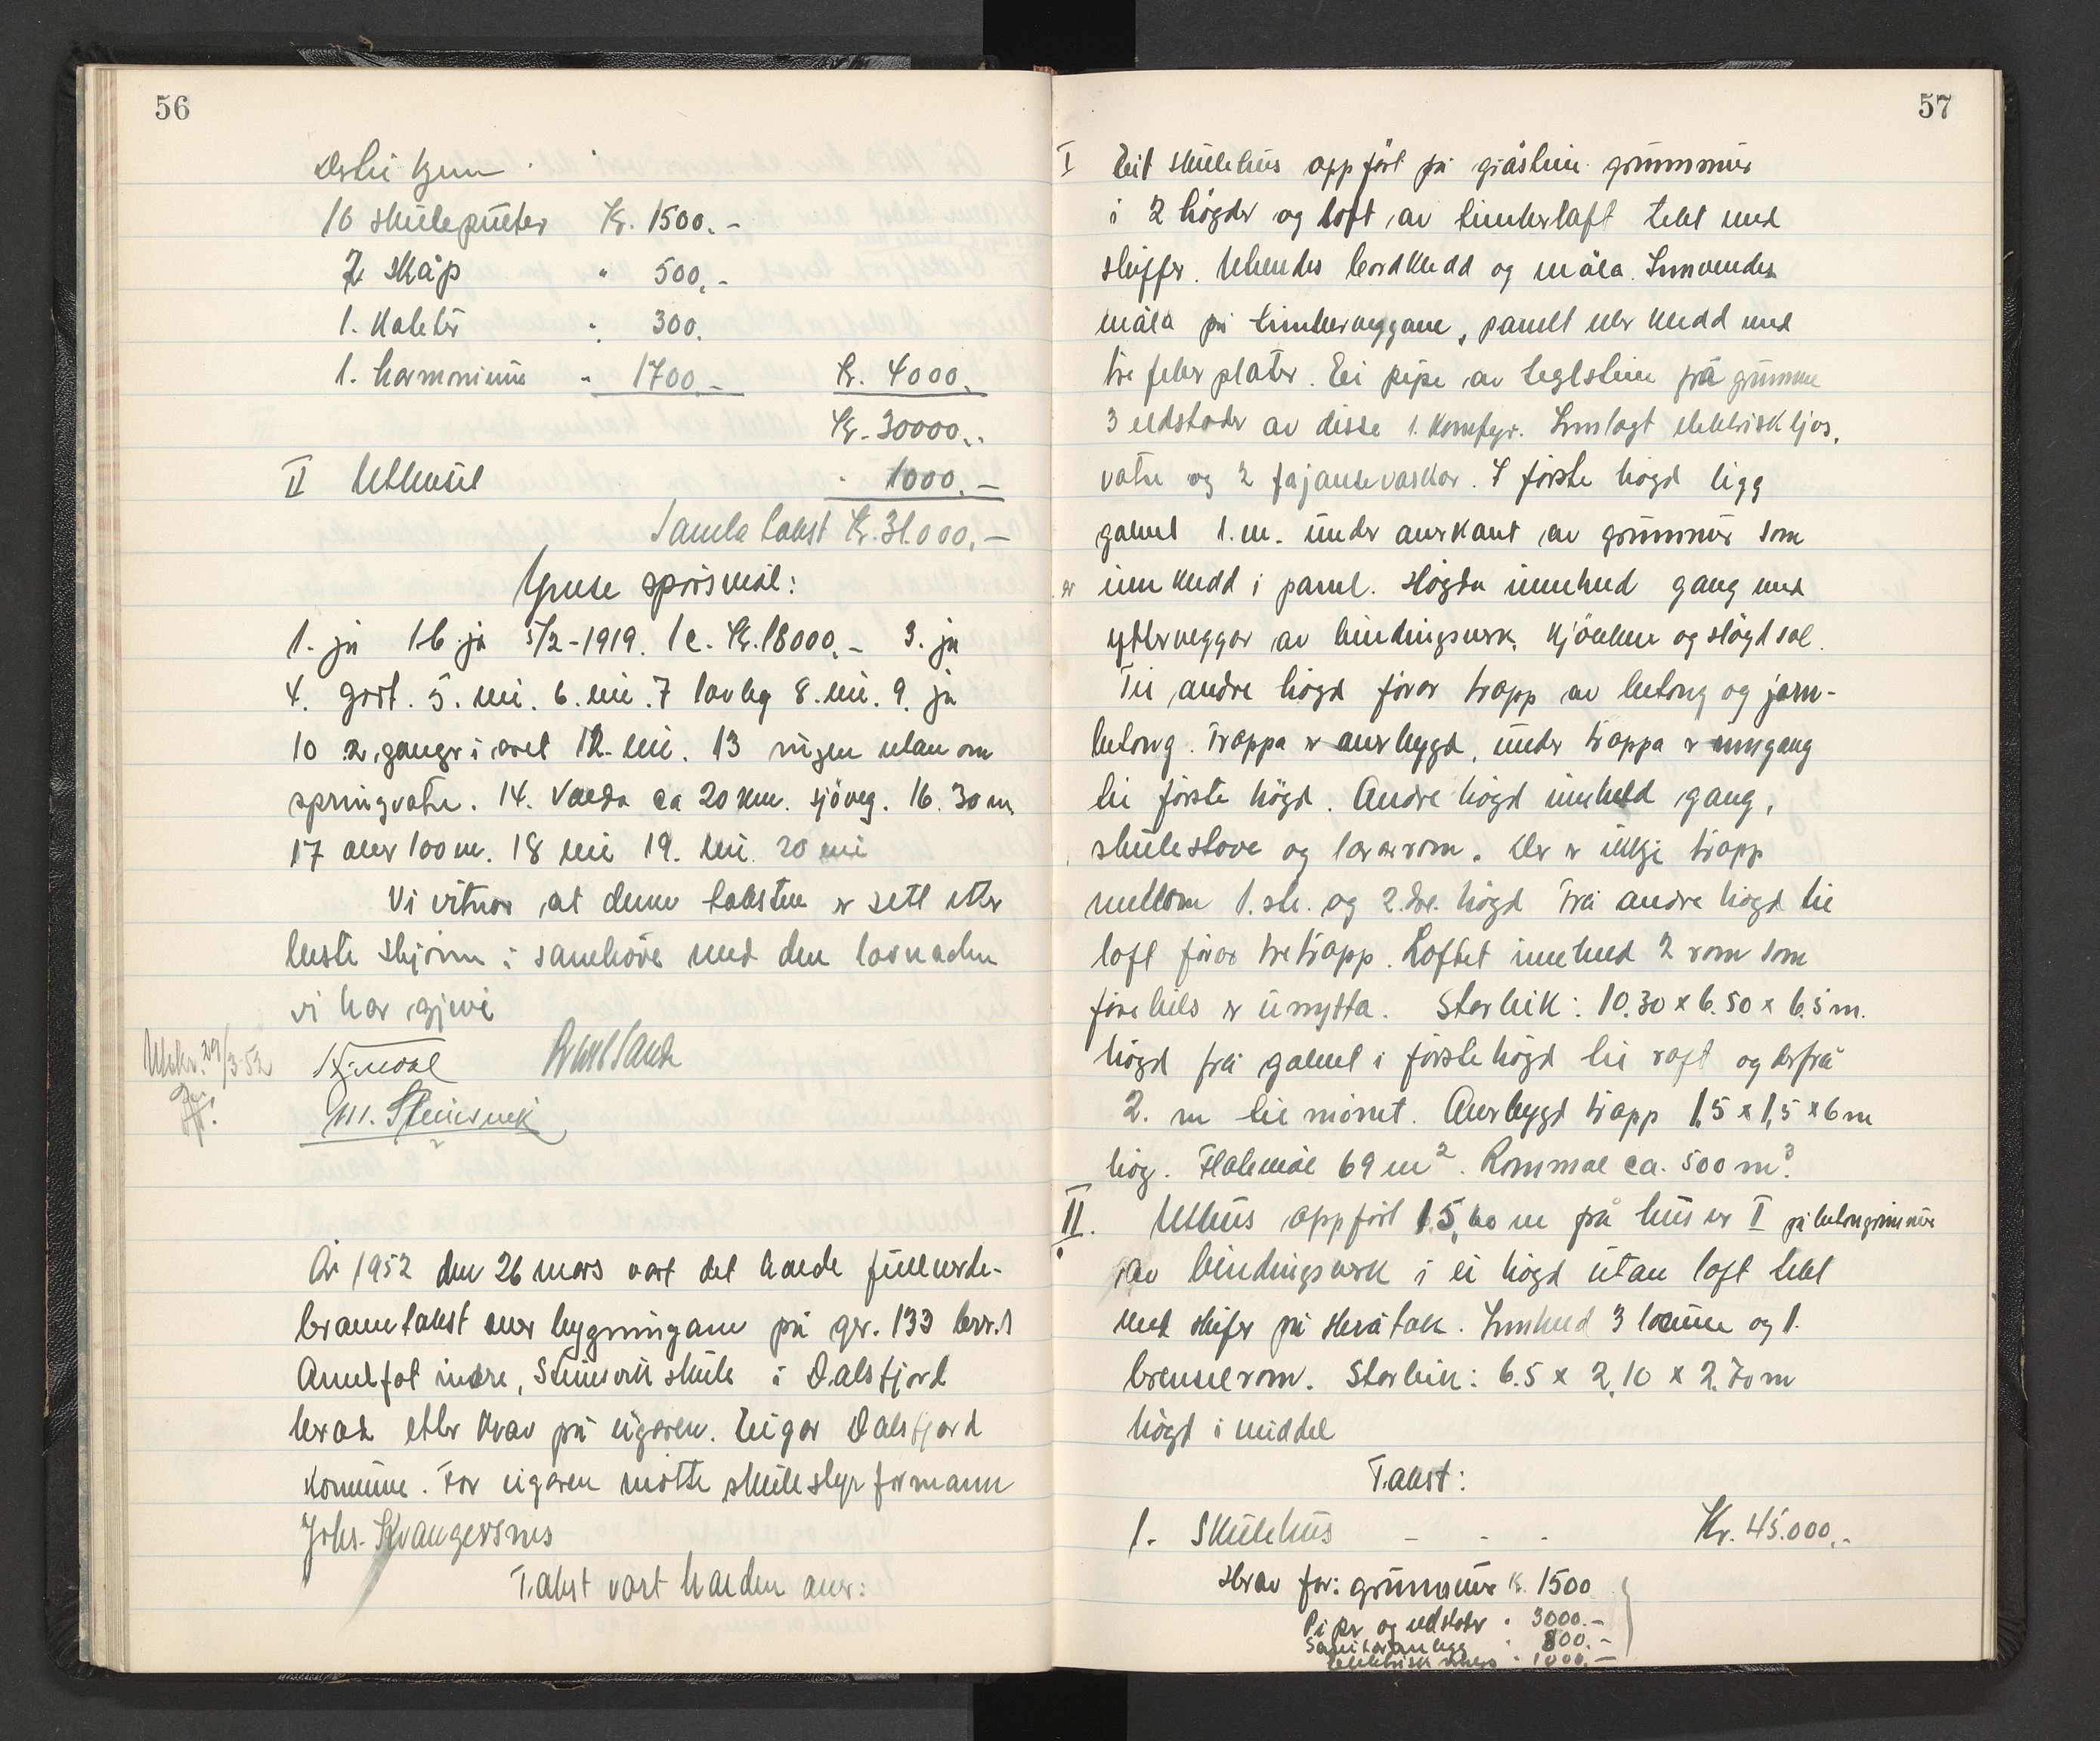 56
Dertil kjem
16 skulepultar Kr. 1500.-
2 skåp " 500.-
1. Kateter " 300.
1. harmonium " 1700.- Kr. 4000.
Kr. 30000.-
II Uthus - 1000.-
Samla takst Kr. 31.000.-
Ymse spörsmål:
1. ja 1b. ja 5/2-1919. 1c. Kr. 18000.- 3. ja
4. godt. 5. nei. 6. nei. 7 lovleg 8. nei. 9. ja
10 2 ganger i året 12. nei. 13 ingen utan om
springvatn. 14. Volda ca 20 km. sjöveg. 16. 30 m
17 over 100 m. 18 nei 19. nei. 20 nei
Vi vitnar at denne taksten er sett etter
beste skjönn i samhöve med den lovnaden
vi har gjeve
Utskr. 29/3-52
M. Steinsvik
År 1952 den 26 mars vart det halde fullverde-
branntakst over bygningane på gr. 133 br.nr. 1
Aurstad indre, Steinsvik skule i Dalsfjord
herad etter krav på eigaren. Eigar Dalsfjord
kommune. For eigaren møtte skulestyr formann
Johs. Kvangersnes
Takst vart halden over:
57
I Eit skulehus oppfört på gråstein grunnmur
i 2 högder og loft av timberlaft tekt med
skiffer. Utvendes bordkledd og måla. Innvendes
måla på timberveggane, panelt eller kledd med
tre fiber plater. Ei pipe av teglstein frå grunnen
3 eldstader av disse 1. komfyr. Innlagt elektrisk ljos,
vatn og 2 fajansevaskar. I förste högd ligg
golvet 1. m. under overkant av grunnmur som
er innkledd i panel. Högda inneheld gang med
ytterveggar av bindingsverk, kjökken og slögdsal.
Til andre högd förer trapp av betong og jarn-
betong. Trappa er overbygd, under trappa er inngang
til förste högd. Andre högd inneheld gang,
skulestove og lærarrom. Der er ikkje trapp
mellom 1.ste. og 2.dre. högd Frå andre högd til
loft förer tretrapp. Loftet inneheld 2 rom som
förebils er unytta. Storleik: 10.30 x 6.50 x 6.5 m.
högd frå golvet i förste högd til raft og derfrå
2. m til mönet. Overbygd trapp 1,5 x 1,5 x 6 m
hög. Flatemål 69 m². Rommål ca. 500 m³.
II. Uthus oppfört 15,60 m frå hus nr I på betongrunnmur
av bindingsverk i ei högd utan loft tekt
med skifer på skråtak. Innheld 3 locum og 1.
brenselrom. Storleik: 6.5 x 2.10 x 2.70 m
högd i middel
Takst:
1. Skulehus - - - Kr. 45.000.-
Herav for: grunnmur k. 1500
Piper og eldstader " 3000.-
Sanitæranlegg " 800.-
Elektrisk anlegg " 1000.-